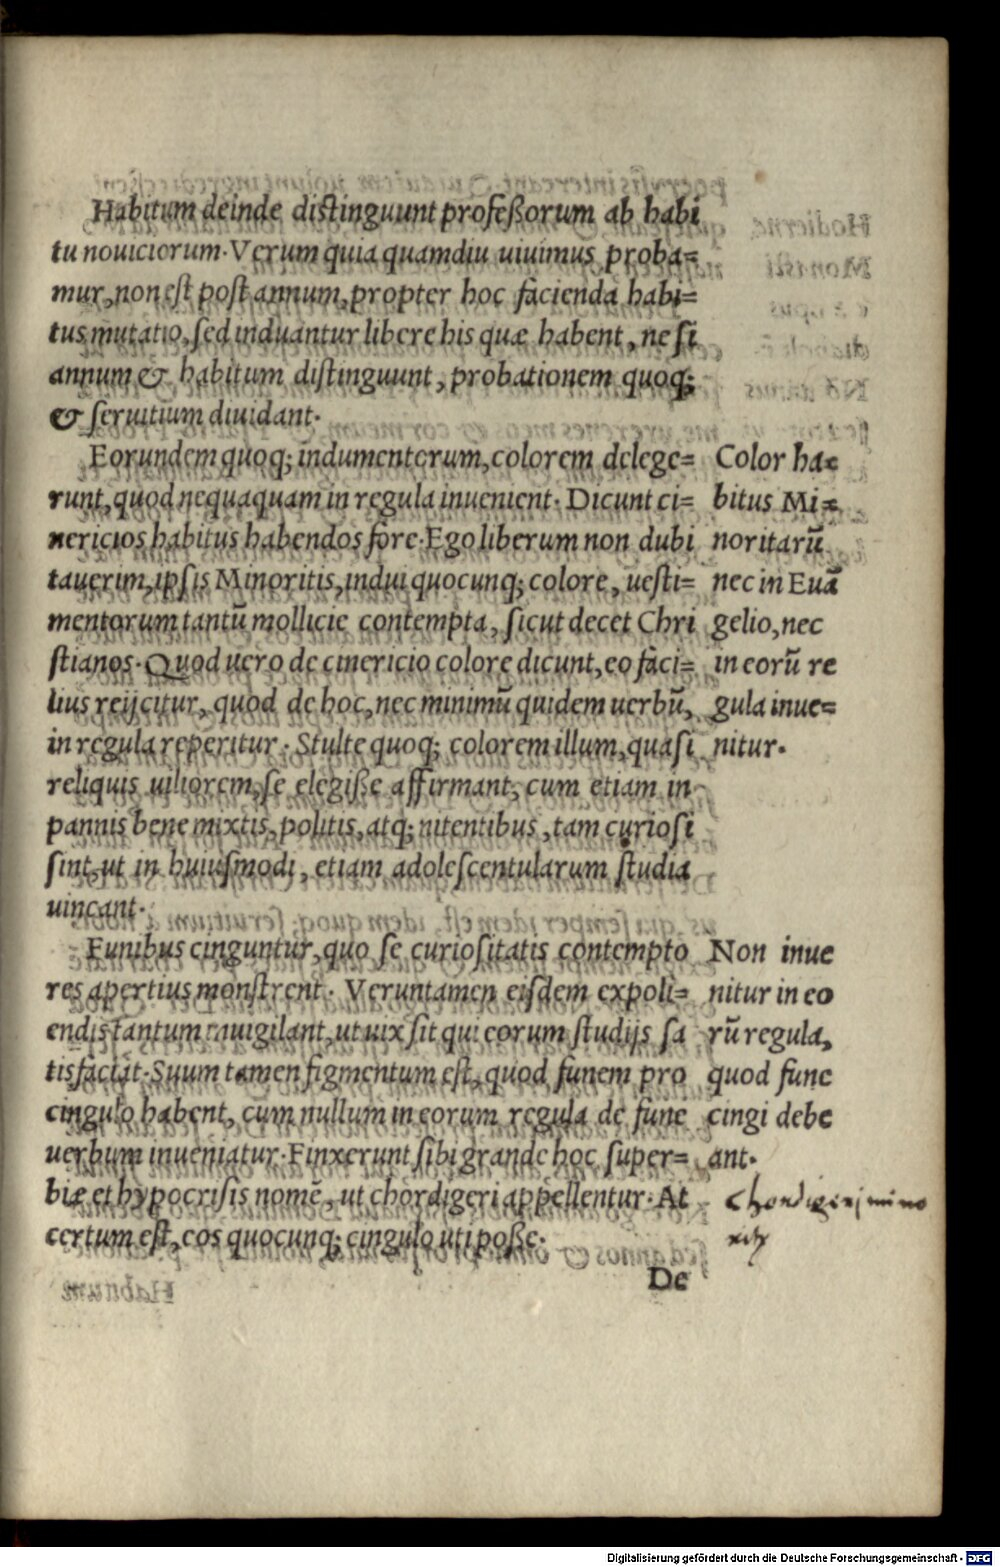 Habitum deinde distinguunt profeßorum ab habi
tu nouiciorum. Verum quia quamdiu uiuimus proba=
mur, non est post annum, propter hoc facienda habi=
tus mutatio, sed induantur libere his quæ habent, ne si
annum & habitum distinguunt, probationem quoq;
& seruitium diuidant.
Eorundem quoq; indumentorum, colorem delege=
runt, quod nequaquam in regula inuenient. Dicunt ci=
nericios habitus habendos fore. Ego liberum non dubi
tauerim, ipsis Minoritis, indui quocunq; colore, uesti=
mentorum tantũ mollicie contempta, sicut decet Chri
stianos. Quod uero de cinericio colore dicunt, eo faci=
lius reijcitur, quod de hoc, nec minimũ quidem uerbũ,
in regula reperitur. Stulte quoq; colorem illum, quasi
reliquis uiliorem, se elegiße affirmant, cum etiam in
pannis bene mixtis, politis, atq; nitentibus, tam curiosi
sint, ut in huiusmodi, etiam adolescentularum studia
uincant.
Funibus cinguntur, quo se curiositatis contempto
res apertius monstrent. Veruntamen eisdem expoli=
endis tantum inuigilant, ut uix sit qui eorum studijs sa
tisfaciat. Suum tamen figmentum est, quod funem pro
cingulo habent, cum nullum in eorum regula de fune
uerbum inueniatur. Finxerunt sibi grande hoc super=
biæ et hypocrisis nomẽ, ut chordigeri appellentur. At
certum est, eos quocunq; cingulo uti poße.
De
Color ha=
bitus Mi=
noritarũ
nec in Euã
gelio, nec
in eorũ re
gula inue=
nitur.
Non inue
nitur in eo
rũ regula,
quod fune
cingi debe
ant.
Chordigeri mino
Digitalisierung gefördert durch die Deutsche Forschungsgemeinschaft - DFG